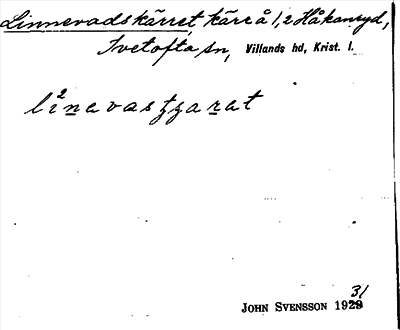 Linnevadskärret, kärr å 1,2 Håkanryd,
Ivetofta sn, Villands hd, Krist. l.
li²nevastʒarat
JOHN SVENSSON 1931